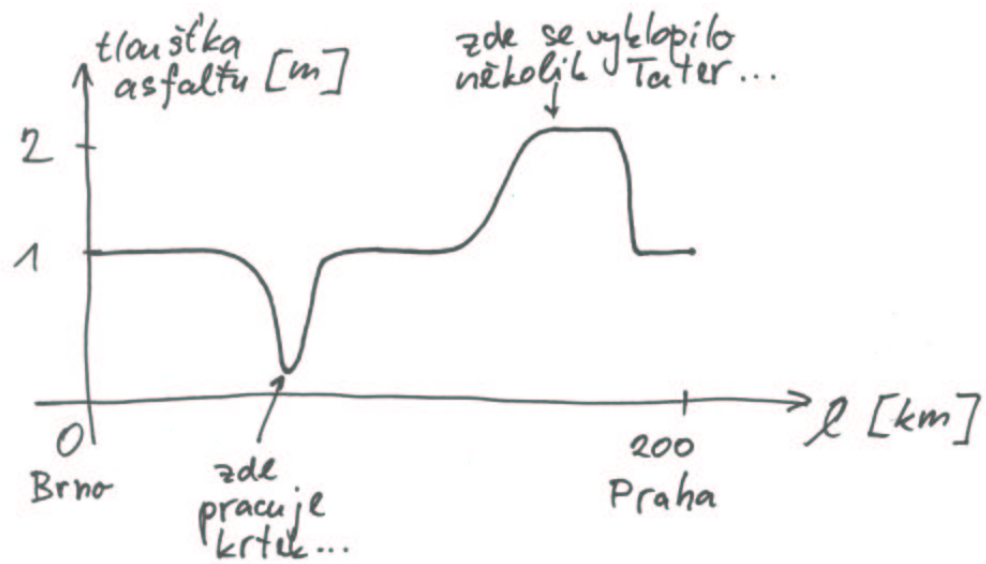 tloušťka
asfaltu [m]
zde se vyklopilo
několik Tater...
2
1
0
Brno
zde
pracuje
krtek...
200
Praha
l [km]